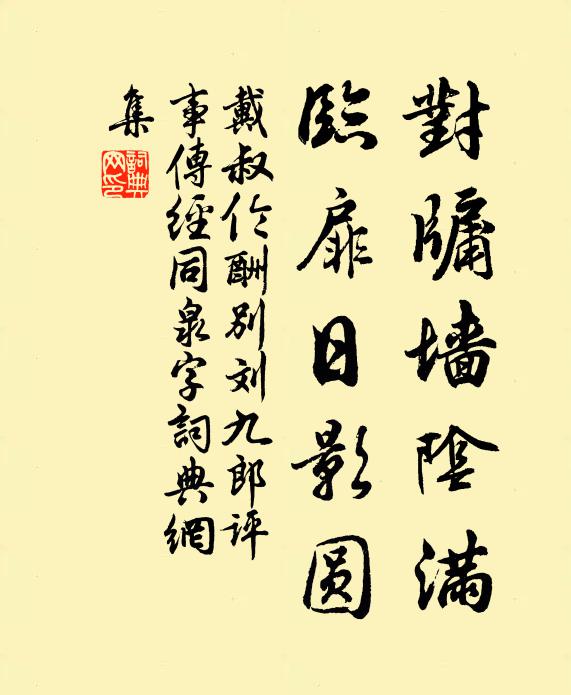 對牖墙陰滿
臨扉日影圆
戴叔伦酬别刘九郎评
事傳經同泉字詞典網
集
詞典网印